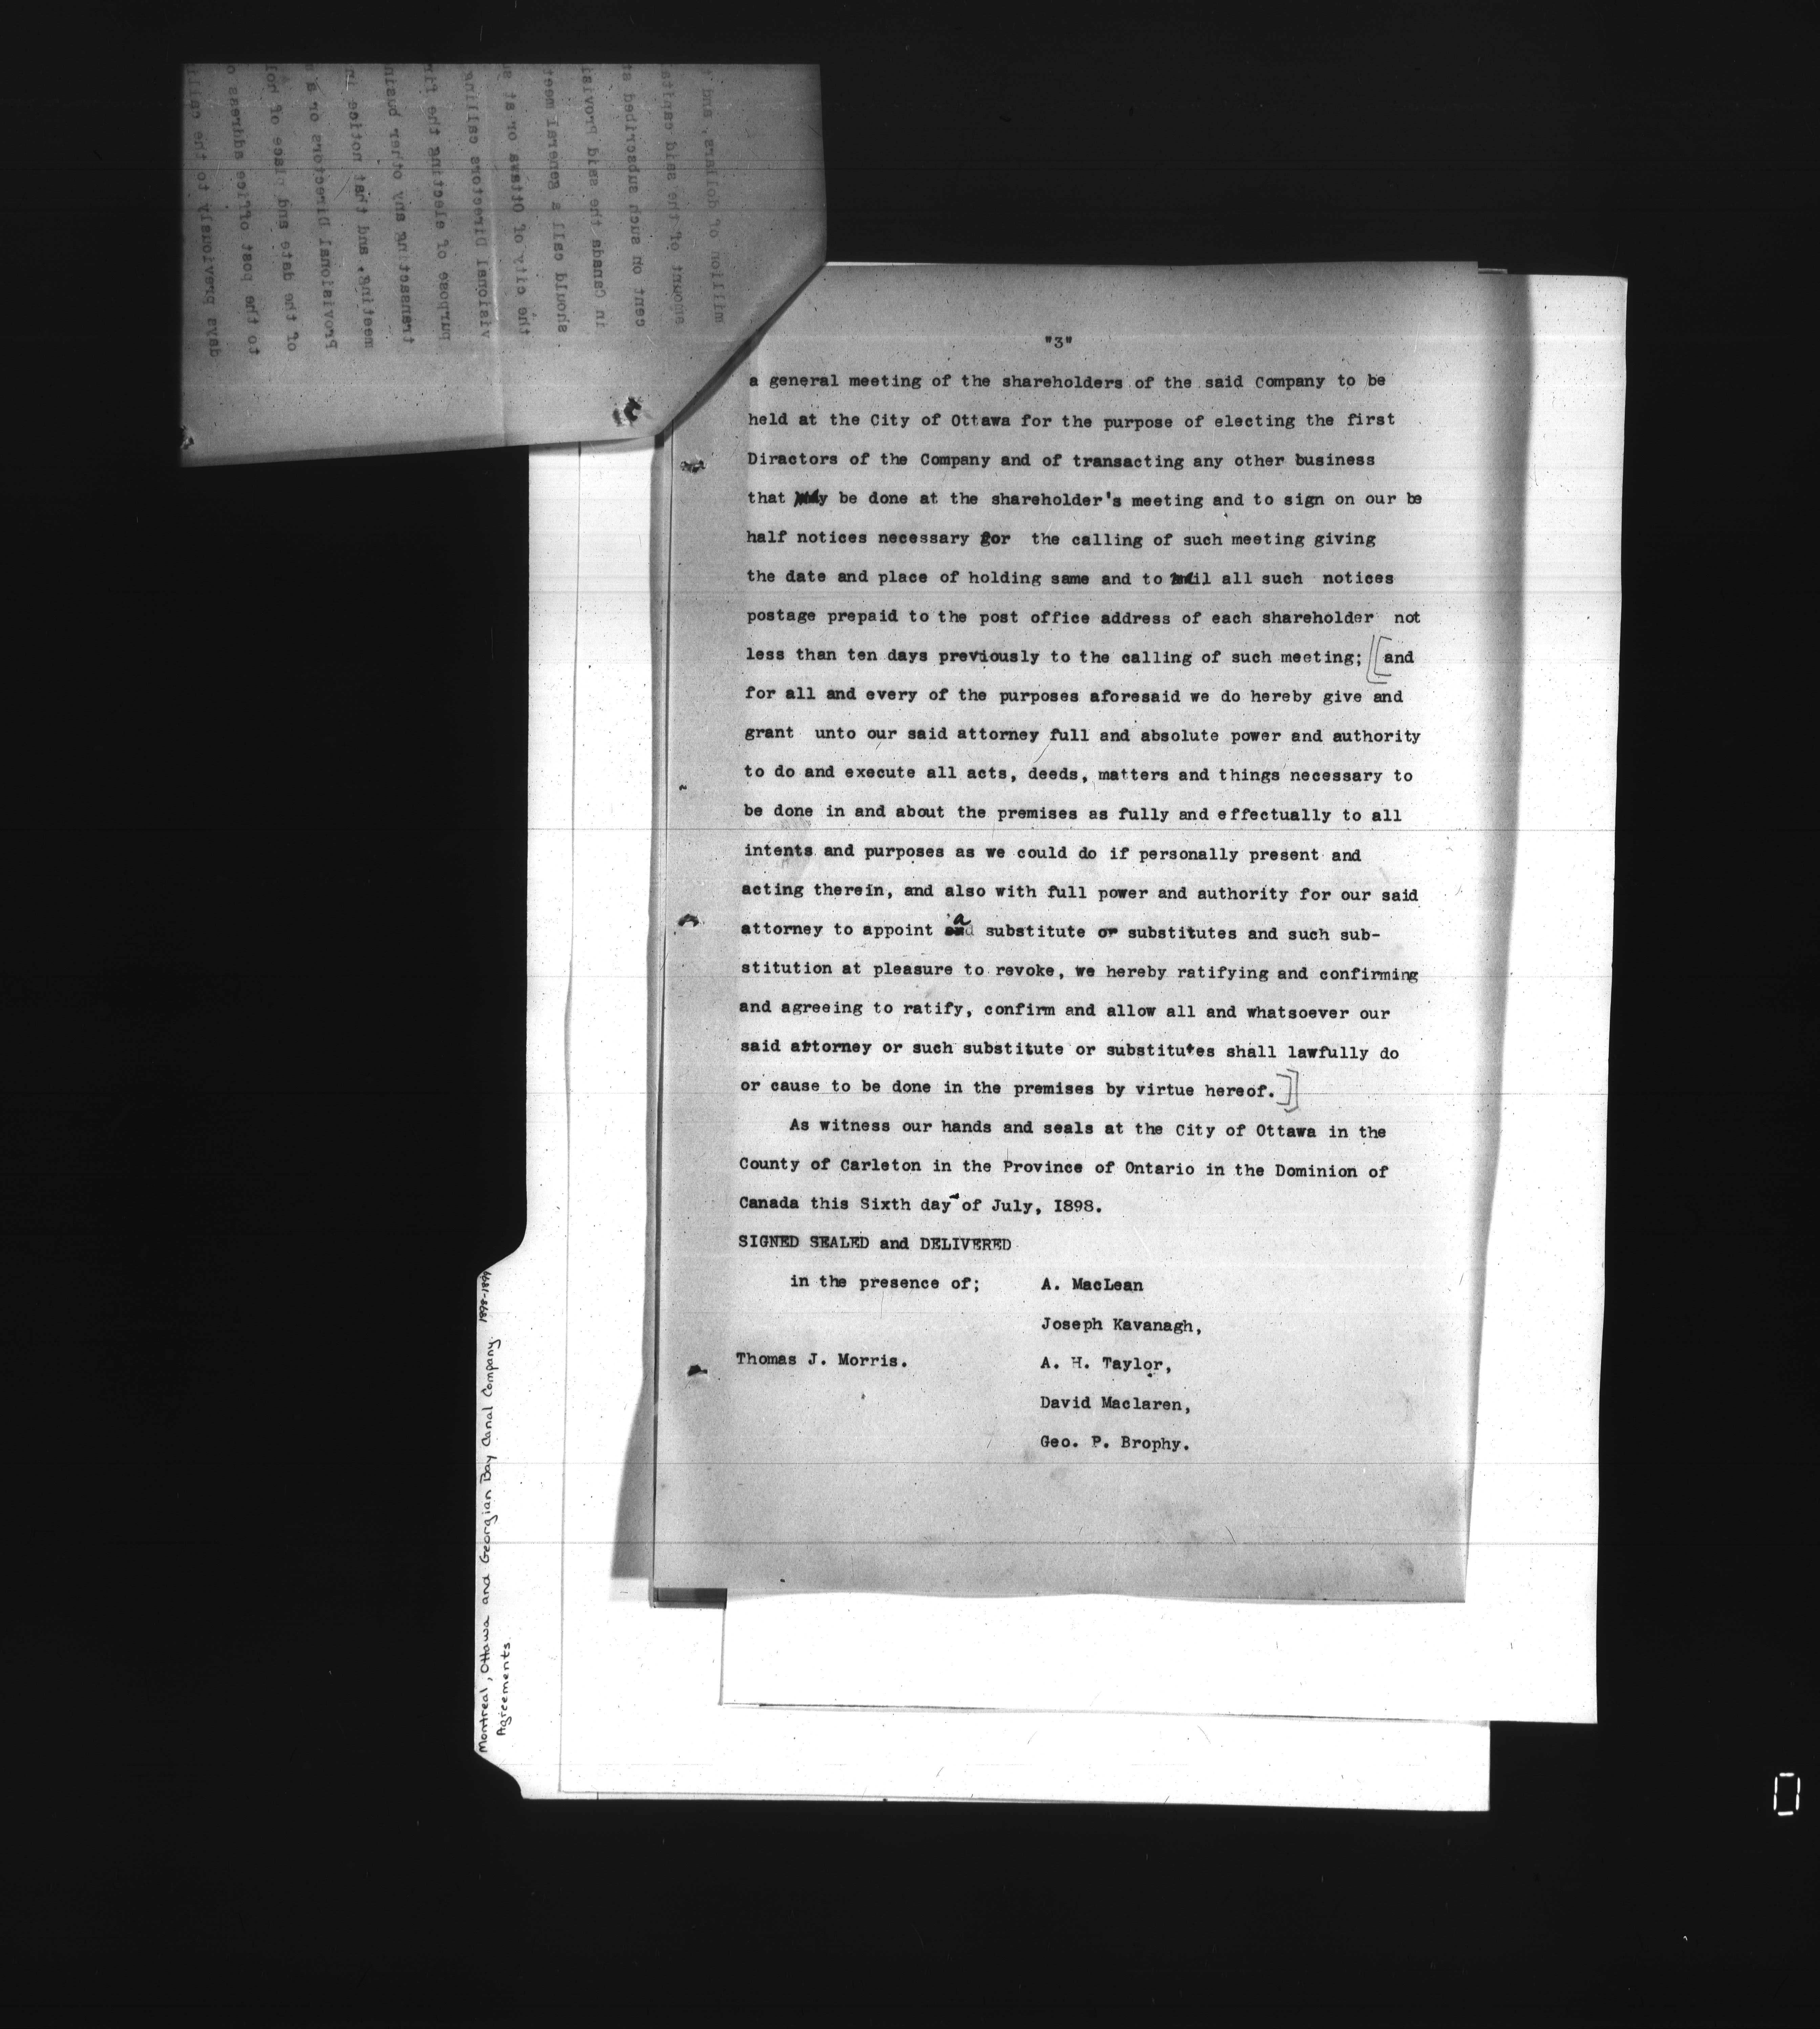 "3"
a general meeting of the shareholders of the said Company to be
held at the City of Ottawa for the purpose of electing the first
Diractors of the Company and of transacting any other business
that may be done at the shareholder's meeting and to sign on our be
half notices necessary for the calling of such meeting giving
the date and place of holding same and to mail all such notices
postage prepaid to the post office address of each shareholder not
less than ten days previously to the calling of such meeting; [[and
for all and every of the purposes aforesaid we do hereby give and
grant unto our said attorney full and absolute power and authority
to do and execute all acts, deeds, matters and things necessary to
be done in and about the premises as fully and effectually to all
intents and purposes as we could do if personally present and
acting therein, and also with full power and authority for our said
attorney to appoint a substitute or substitutes and such sub-
stitution at pleasure to revoke, we hereby ratifying and confirming
and agreeing to ratify, confirm and allow all and whatsoever our
said attorney or such substitute or substitutes shall lawfully do
or cause to be done in the premises by virtue hereof.]]
As witness our hands and seals at the City of Ottawa in the
County of Carleton in the Province of Ontario in the Dominion of
Canada this Sixth day of July, I898.
SIGNED SEALED and DELIVERED
in the presence of; A. MacLean
Joseph Kavanagh,
Thomas J. Morris. A. H. Taylor,
David Maclaren,
Geo. P. Brophy.
Montreal, Ottawa and Georgian Bay Canal Company. 1898-1899
Agreements.
million of dollars, and
amount of the said capital
cent on such subscribed
in Canada the said Provis
should call a general meet
the city of Ottawa or at
visional Directors calling
purpose of electing the
transacting any other busin
meeting, and that notice
Provisional Directors or
of the date and place of hol
to the post office address
days previously to the calli